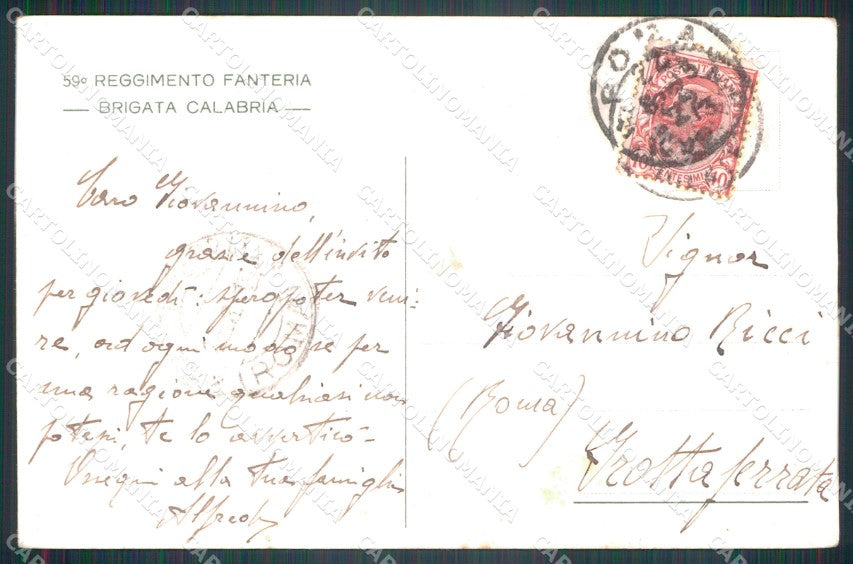 59º REGGIMENTO FANTERIA
BRIGATA CALABRIA
Caro Giovannino,
grazie dell'invito
per giovedì: spero poter veni-
re, ad ogni modo se per
una ragione qualsiasi non
potessi, te lo avvertirò-
Ossequi alla tua famiglia
Alfredo
ROMA
CENTESIMI
10
Signor
Giovannino Ricci
(Roma)
Grottaferrata
CARTOLINOMANIA